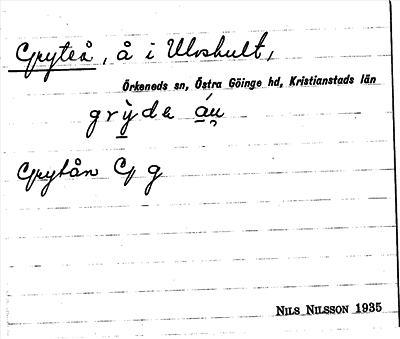 Gryteå, å i Ulvshult,
Örkeneds sn, Östra Göinge hd, Kristianstads län
grỳde áu
Grytån G g
NILS NILSSON 1935